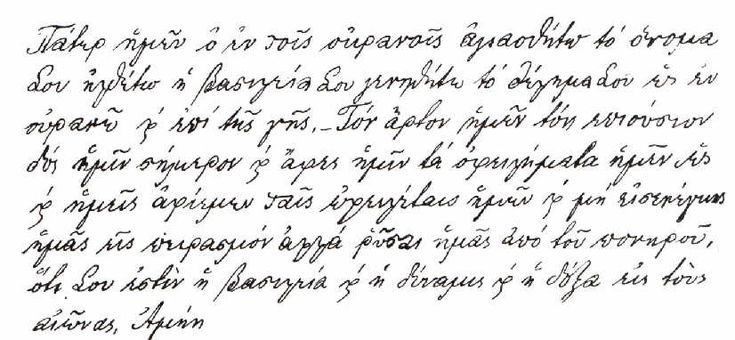 Πάτερ ἡμῶν ὁ ἐν τοῖς οὐρανοῖς ἁγιασθήτω τό ὄνομα
Σου ἠλθέτω ἡ βασιλεία Σου γενηθήτω τό θέλημα Σου ὡς ἐν
οὐρανῷ ϗ ἐπί τῆς γῆς. – Τόν ἄρτον ἡμῶν τόν επιούσιον
δός ἡμῖν σήμερον ϗ ἄφες ἡμῖν τά ὀφειλήματα ἡμῶν ὡς
ϗ ἡμεῖς ἀφίεμεν τοῖς ὀφειλέταις ἡμῶν ϗ μή εἰσενέγκης
ἡμᾶς εἰς πειρασμόν ἀλλά ῥῦσαι ἡμᾶς ἀπό τοῦ πονηροῦ,
ὅτι Σου ἐστὶν ἡ βασιλεία ϗ ἡ δύναμις ϗ ἡ δόξα εἰς τοὺς
αἰῶνας. Ἀμήν